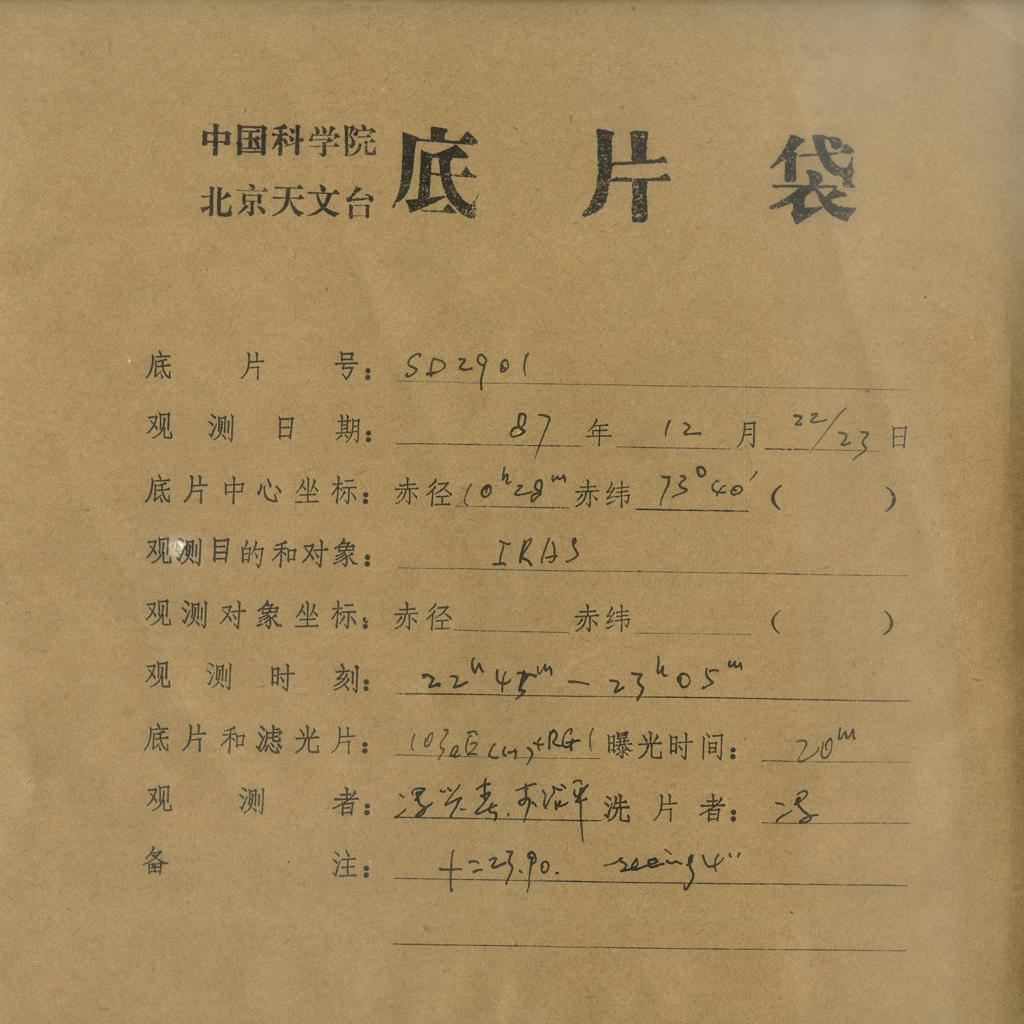 中国科学院
北京天文台
底片袋
底片号：SD2901
观测日期：87年12月22/23日
底片中心坐标：赤径10ʰ28ᵐ赤纬73°40′（ ）
观测目的和对象：IRAS
观测对象坐标：赤径 赤纬 （ ）
观测时刻：22ʰ45ᵐ—23ʰ05ᵐ
底片和滤光片：103aE(H)+RG1曝光时间：20ᵐ
观测者：冯 春. 洗片者：冯
备注：f=23.90. seeing4″